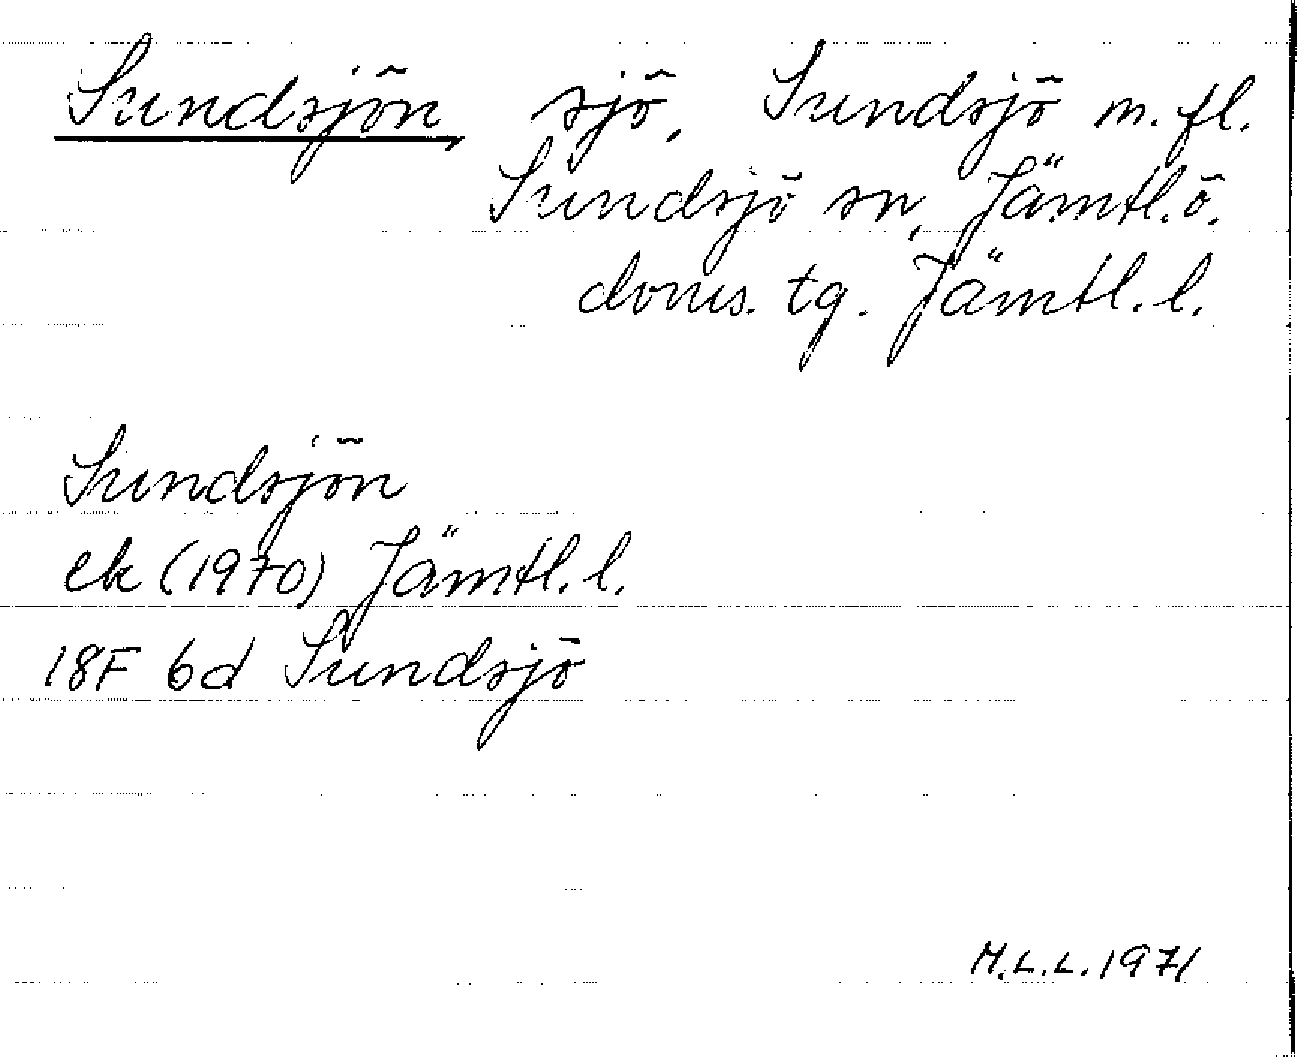 Sundsjön, sjö, Sundsjö m. fl.
Sundsjö sn, Jämtl. ö.
doms. tg. Jämtl. l.
Sundsjön
ek (1970) Jämtl. l.
18F 6d Sundsjö
M.L.L. 1971